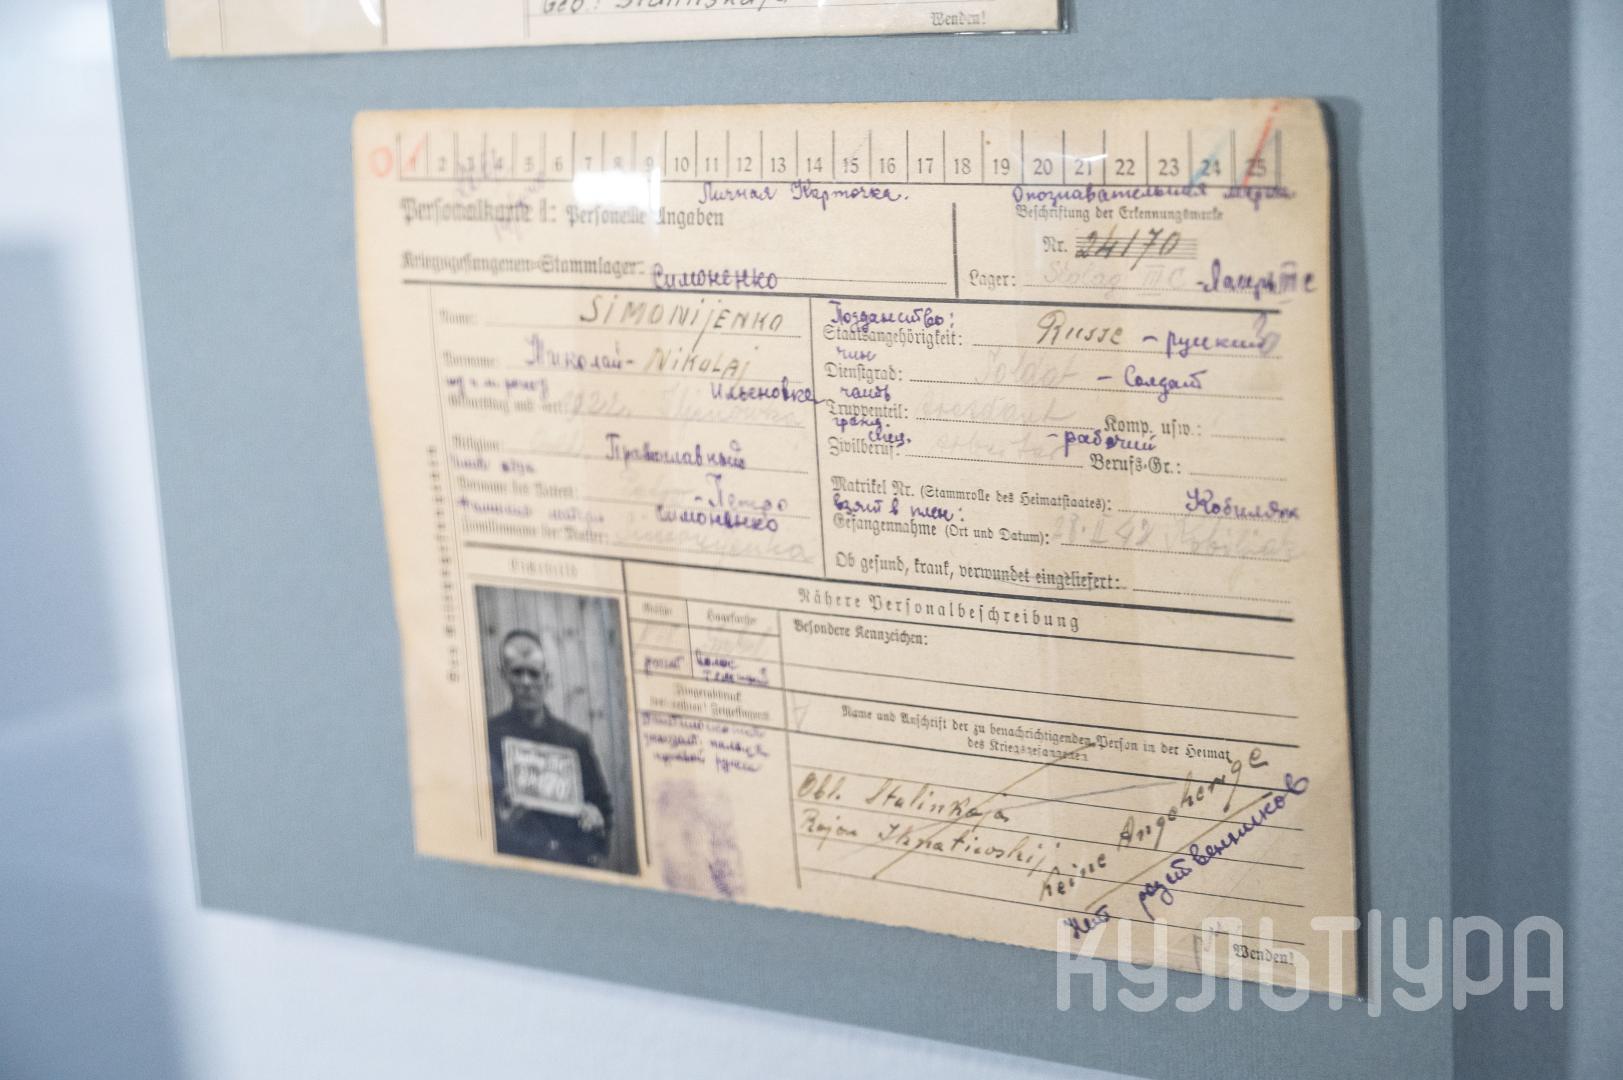 Geb.:
Wenden!
0 1 2 3 4 5 6 7 8 9 10 11 12 13 14 15 16 17 18 19 20 21 22 23 24 25
Личная Карточка.
Опознавательная марка
Personalkarte I: Personelle Angaben
Beschriftung der Erkennungsmarke
Nr. 24170
Kriegsgefangenen-Stammlager:
Симоненко
Lager: Stalag III C - Лагерь III C
Name: SIMONIJENKO
Vorname: Николай - NIKOLAJ
Ильеновка
Geburtstag und -ort: 1922
Religion: Православный
Vorname des Vaters: - Петро
Симоненко
Familienname der Mutter:
Staatsangehörigkeit: Russe - руский
чин
Dienstgrad: Soldat - Солдат
часть
Truppenteil:
Komp. usw.:
гражд.
спец.
Zivilberuf: - рабочий
Berufs-Gr.:
Matrikel Nr. (Stammrolle des Heimatstaates):
Кобиляки
взят в плен:
Gefangennahme (Ort und Datum):
Ob gesund, krank, verwundet eingeliefert:
Des Kriegsgefangenen
Lichtbild
Nähere Personalbeschreibung
Größe
Haarfarbe
Besondere Kennzeichen:
рост
Волос
темный
Fingerabdruck
des rechten! Zeigefingers
указат. пальца
правой руки
Name und Anschrift der zu benachrichtigenden Person in der Heimat
des Kriegsgefangenen
Obl. Stalinkaja
Rajon
keine Angoherige
Нет родственников
Wenden!
КУЛЬТУРА